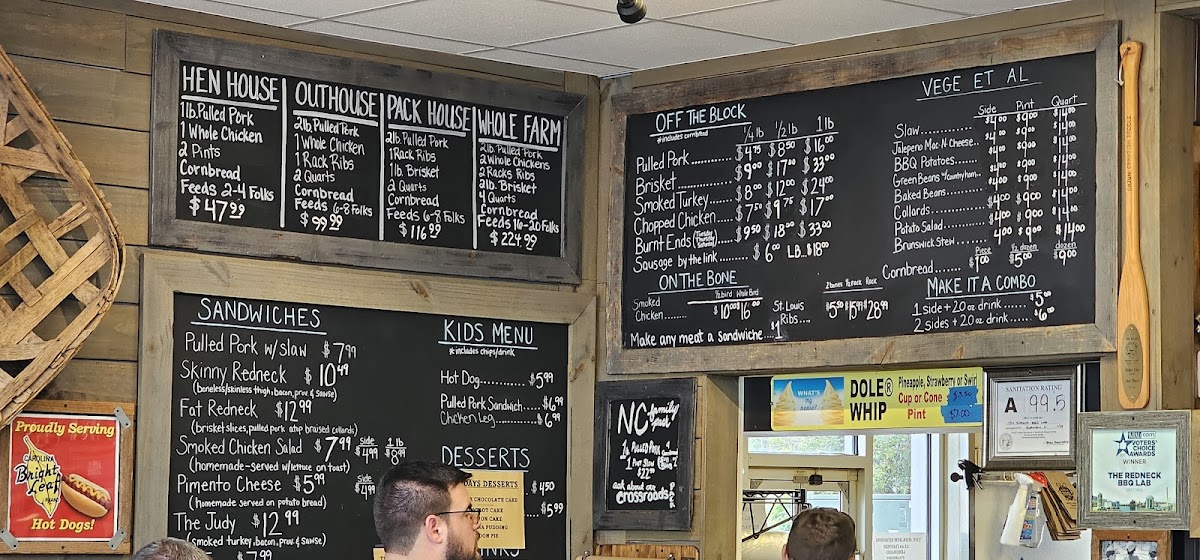 HEN HOUSE
1lb. Pulled Pork
1 Whole Chicken
2 Pints
Cornbread
Feeds 2-4 Folks
$47.99
OUTHOUSE
2lb. Pulled Pork
1 Whole Chicken
1 Rack Ribs
2 Quarts
Cornbread
Feeds 6-8 Folks
$99.99
PACK HOUSE
2lb. Pulled Pork
1 Rack Ribs
1lb. Brisket
2 Quarts
Cornbread
Feeds 6-8 Folks
$116.99
WHOLE FARM
2lb. Pulled Pork
2 Whole Chickens
2 Racks Ribs
2lb. Brisket
4 Quarts
Cornbread
Feeds 16-20 Folks
$224.99
OFF THE BLOCK
*includes cornbread
1/4 lb 1/2 lb 1 lb
Pulled Pork $4.75 $8.50 $16.00
Brisket $9.00 $17.00 $33.00
Smoked Turkey $8.00 $12.00 $24.00
Chopped Chicken $7.50 $9.75 $17.00
Burnt Ends $9.50 $18.00 $33.00
Sausage by the link $6.00 LB... $18.00
ON THE BONE
1/2 bird Whole Bird
Smoked
Chicken $10.00 $16.00
St. Louis
Ribs $5.50 $15.99 $28.99
Make any meat a Sandwiche $1
VEGE ET AL
Side Pint Quart
Slaw $4.00 $9.00 $14.00
Jalepeno Mac N Cheese $4.00 $9.00 $14.00
BBQ Potatoes $4.00 $9.00 $14.00
Green Beans *country ham $4.00 $9.00 $14.00
Baked Beans $4.00 $9.00 $14.00
Collards $4.00 $9.00 $14.00
Potato Salad $4.00 $9.00 $14.00
Brunswick Stew $4.00 $9.00 $14.00
Piece 1/2 dozen dozen
Cornbread $1.00 $5.00 $9.00
MAKE IT A COMBO
1 side + 20 oz drink $5.00
2 sides + 20 oz drink $6.00
SANDWICHES
Pulled Pork w/slaw $7.99
Skinny Redneck $10.49
(boneless/skinless thigh, bacon, prov. & sawse)
Fat Redneck $12.99
(brisket slices, pulled pork atop braised collards)
Smoked Chicken Salad $7.99 side $4.99 1 lb $8.99
(homemade-served w/lettuce on toast)
Pimento Cheese $5.99 Side $4.99
(homemade served on potato bread)
The Judy $12.99
(smoked turkey, bacon, prov. & sawse)
$7.99
KIDS MENU
*includes chips/drink
Hot Dog $5.99
Pulled Pork Sandwich $6.99
Chicken Leg $6.99
DESSERTS
DAYS DESSERTS
CHOCOLATE CAKE
CAKE
CAKE
PUDDING
PIE
$4.50
$5.99
NC family
1lb Pulled Pork
$22.00
ask about our
crossroads
DOLE® WHIP
Pineapple, Strawberry or Swirl
Cup or Cone
Pint $7.00
SANITATION RATING
A 99.5
VOTERS' CHOICE AWARDS
WINNER
THE REDNECK
BBQ LAB
Proudly Serving
CAROLINA
Bright Leaf
BRAND
Hot Dogs!